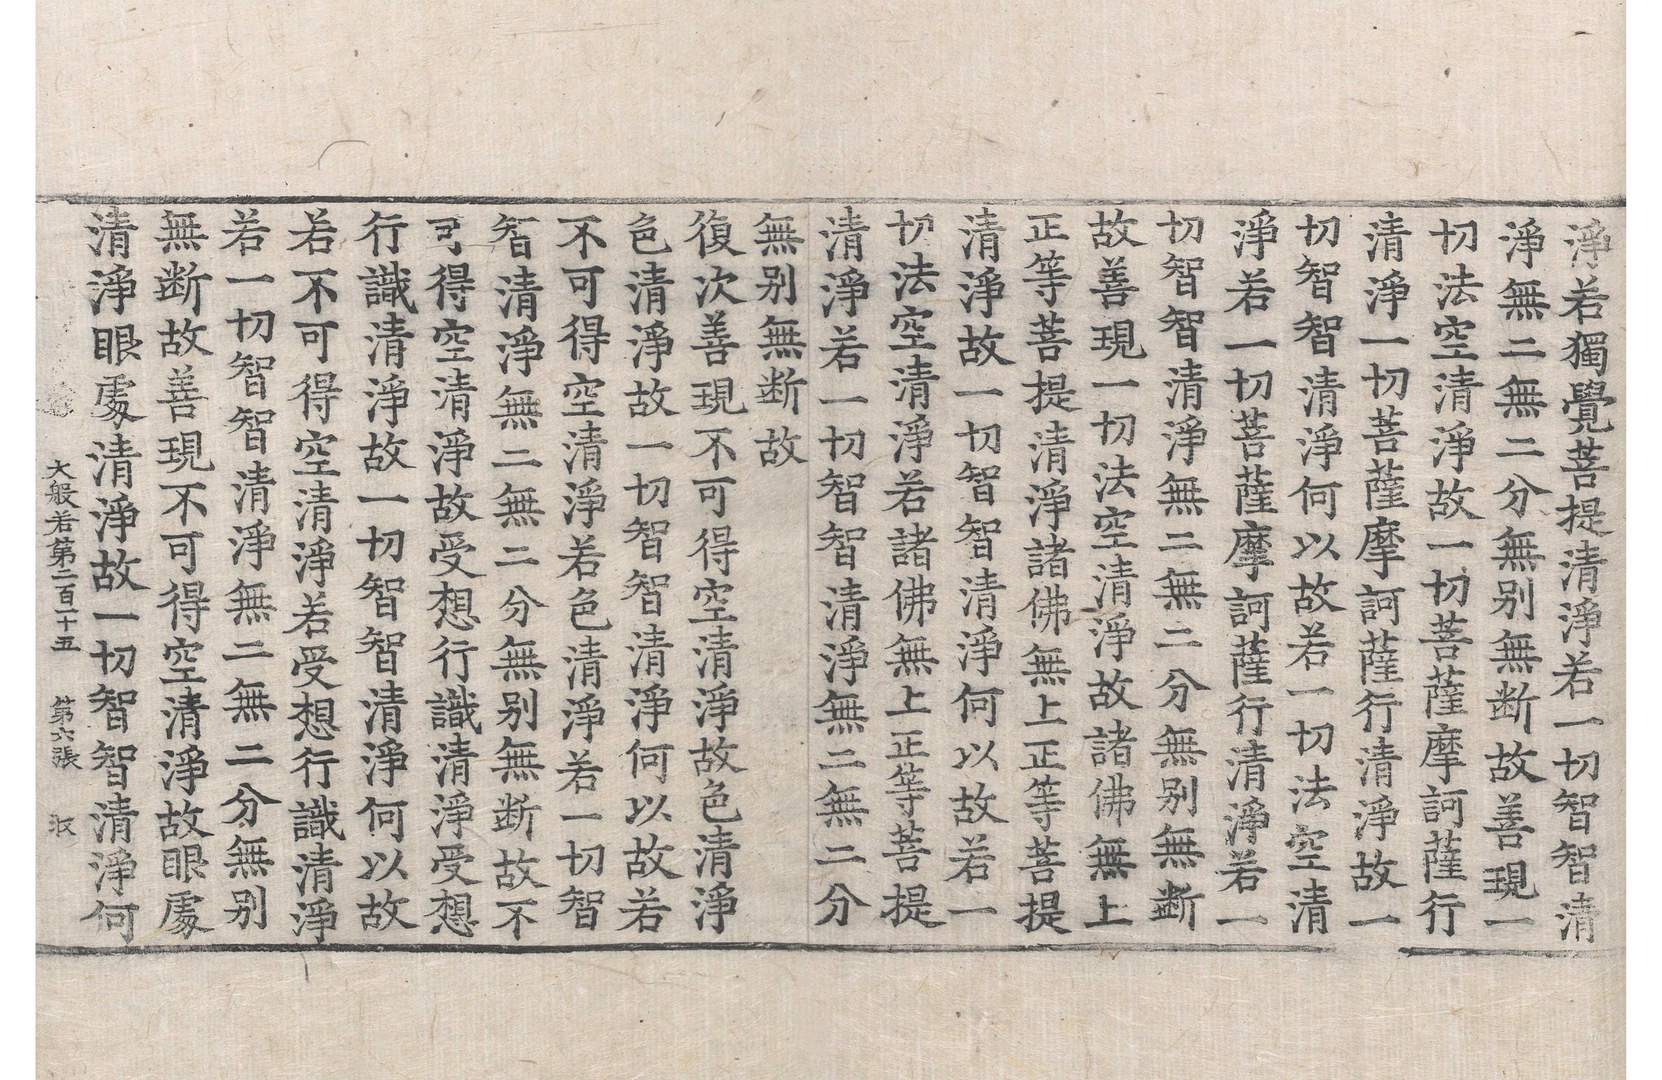 淨若獨覺菩提清淨若一切智智清
淨無二無二分無別無断故善現一
切法空清淨故一切菩薩摩訶薩行
清淨一切菩薩摩訶薩行清淨故一
切智智清淨何以故若一切法空清
淨若一切菩薩摩訶薩行清淨若一
切智智清淨無二無二分無別無斷
故善現一切法空清淨故諸佛無上
正等菩提清淨諸佛無上正等菩提
清淨故一切智智清淨何以故若一
切法空清淨若諸佛無上正等菩提
清淨若一切智智清淨無二無二分
無別無断故
復次善現不可得空清淨故色清淨
色清淨故一切智智清淨何以故若
不可得空清淨若色清淨若一切智
智清淨無二無二分無別無断故不
可得空清淨故受想行識清淨受想
行識清淨故一切智智清淨何以故
若不可得空清淨若受想行識清淨
若一切智智清淨無二無二分無別
無断故善現不可得空清淨故眼處
清淨眼處清淨故一切智智清淨何
大般若第二百一十五 第六張